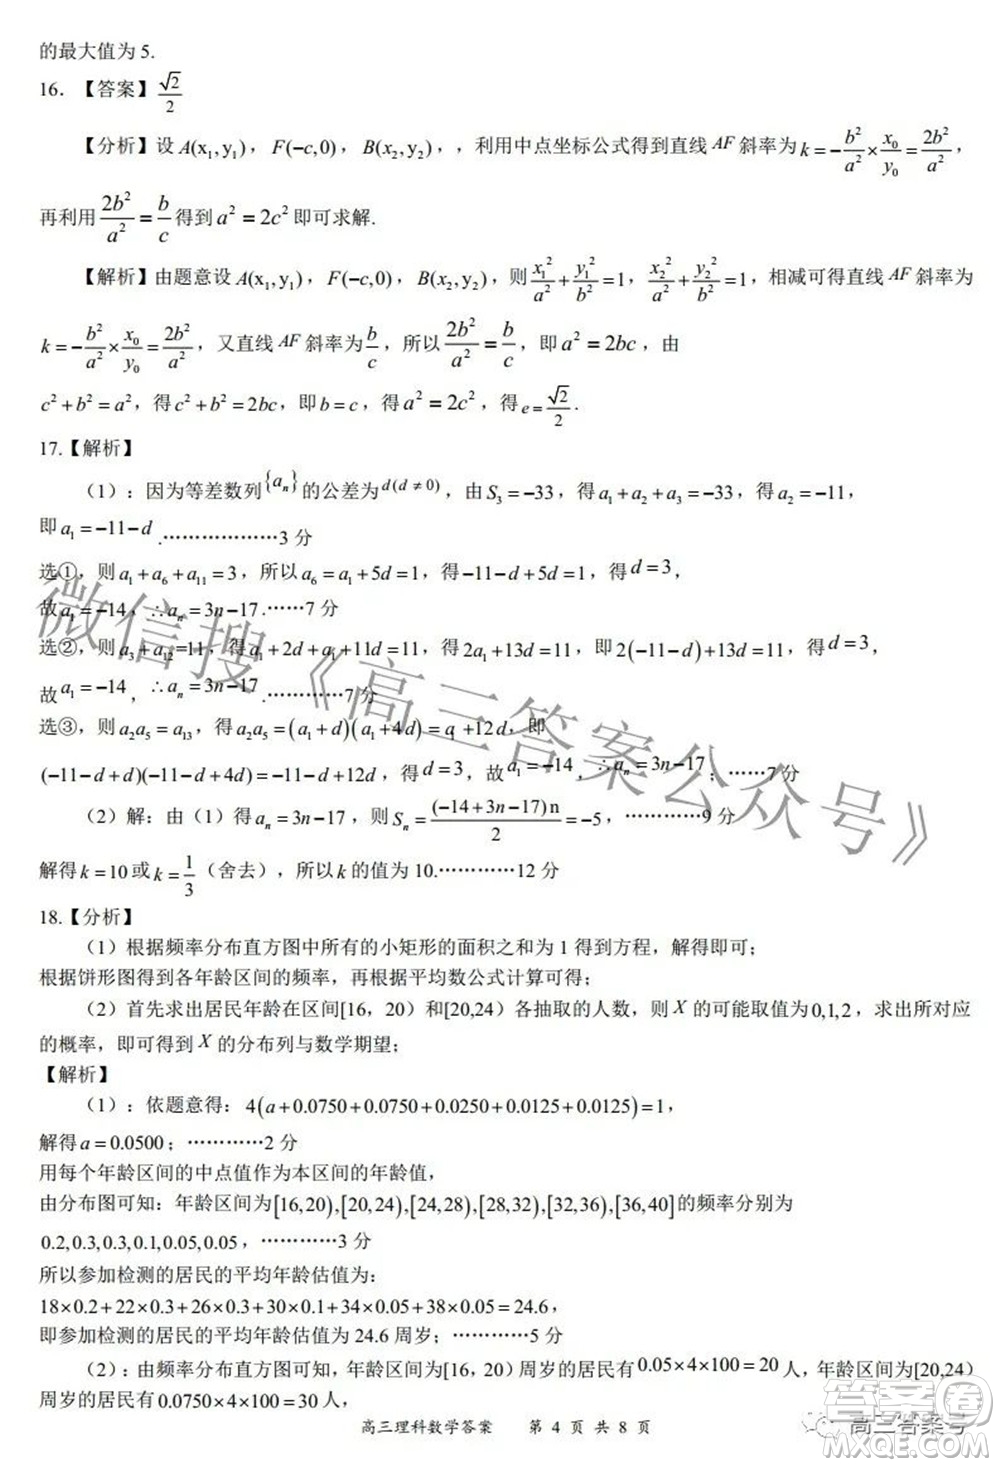 的最大值为 5.
16. 【答案】$\frac{\sqrt{2}}{2}$
【分析】设 $A(x_1,y_1)$，$F(-c,0)$，$B(x_2,y_2)$，，利用中点坐标公式得到直线 AF 斜率为 $k=-\frac{b^2}{a^2}\times\frac{x_0}{y_0}=\frac{2b^2}{a^2}$，
再利用 $\frac{2b^2}{a^2}=\frac{b}{c}$ 得到 $a^2=2c^2$ 即可求解.
【解析】由题意设 $A(x_1,y_1)$，$F(-c,0)$，$B(x_2,y_2)$，则 $\frac{x_1^2}{a^2}+\frac{y_1^2}{b^2}=1$，$\frac{x_2^2}{a^2}+\frac{y_2^2}{b^2}=1$，相减可得直线 AF 斜率为
$k=-\frac{b^2}{a^2}\times\frac{x_0}{y_0}=\frac{2b^2}{a^2}$，又直线 AF 斜率为 $\frac{b}{c}$，所以 $\frac{2b^2}{a^2}=\frac{b}{c}$，即 $a^2=2bc$，由
$c^2+b^2=a^2$，得 $c^2+b^2=2bc$，即 $b=c$，得 $a^2=2c^2$，得 $e=\frac{\sqrt{2}}{2}$.
17.【解析】
（1）：因为等差数列 $\{a_n\}$ 的公差为 $d(d\neq0)$，由 $S_3=-33$，得 $a_1+a_2+a_3=-33$，得 $a_2=-11$，
即 $a_1=-11-d$ .………………3 分
选①，则 $a_1+a_6+a_{11}=3$，所以 $a_6=a_1+5d=1$，得 $-11-d+5d=1$，得 $d=3$，
故 $a_1=-14$，∴ $a_n=3n-17$ .……7 分
选②，则 $a_3+a_{12}=11$，得 $a_1+2d+a_1+11d=11$，得 $2a_1+13d=11$，即 $2(-11-d)+13d=11$，得 $d=3$，
故 $a_1=-14$，∴ $a_n=3n-17$ .…………7 分
选③，则 $a_2a_5=a_{13}$，得 $a_2a_5=(a_1+d)(a_1+4d)=a_1+12d$，即
$(-11-d+d)(-11-d+4d)=-11-d+12d$，得 $d=3$，故 $a_1=-14$，∴ $a_n=3n-17$；……7 分
（2）解：由（1）得 $a_n=3n-17$，则 $S_n=\frac{(-14+3n-17)n}{2}=-5$，…………9 分
解得 $k=10$ 或 $k=\frac{1}{3}$（舍去），所以 k 的值为 10.…………12 分
18.【分析】
（1）根据频率分布直方图中所有的小矩形的面积之和为 1 得到方程，解得即可；
根据饼形图得到各年龄区间的频率，再根据平均数公式计算可得；
（2）首先求出居民年龄在区间[16，20）和[20,24）各抽取的人数，则 X 的可能取值为 0,1,2，求出所对应
的概率，即可得到 X 的分布列与数学期望；
【解析】
（1）：依题意得：$4(a+0.0750+0.0750+0.0250+0.0125+0.0125)=1$，
解得 $a=0.0500$；…………2 分
用每个年龄区间的中点值作为本区间的年龄值，
由分布图可知：年龄区间为 $[16,20),[20,24),[24,28),[28,32),[32,36),[36,40]$ 的频率分别为
0.2,0.3,0.3,0.1,0.05,0.05，…………3 分
所以参加检测的居民的平均年龄估值为：
$18\times0.2+22\times0.3+26\times0.3+30\times0.1+34\times0.05+38\times0.05=24.6$，
即参加检测的居民的平均年龄估值为 24.6 周岁；…………5 分
（2）：由频率分布直方图可知，年龄区间为[16，20）周岁的居民有 $0.05\times4\times100=20$ 人，年龄区间为[20,24）
周岁的居民有 $0.0750\times4\times100=30$ 人，
高三理科数学答案 第 4 页 共 8 页
微信搜《高三答案公众号》
高三答案号
答案圈
MXQE.COM